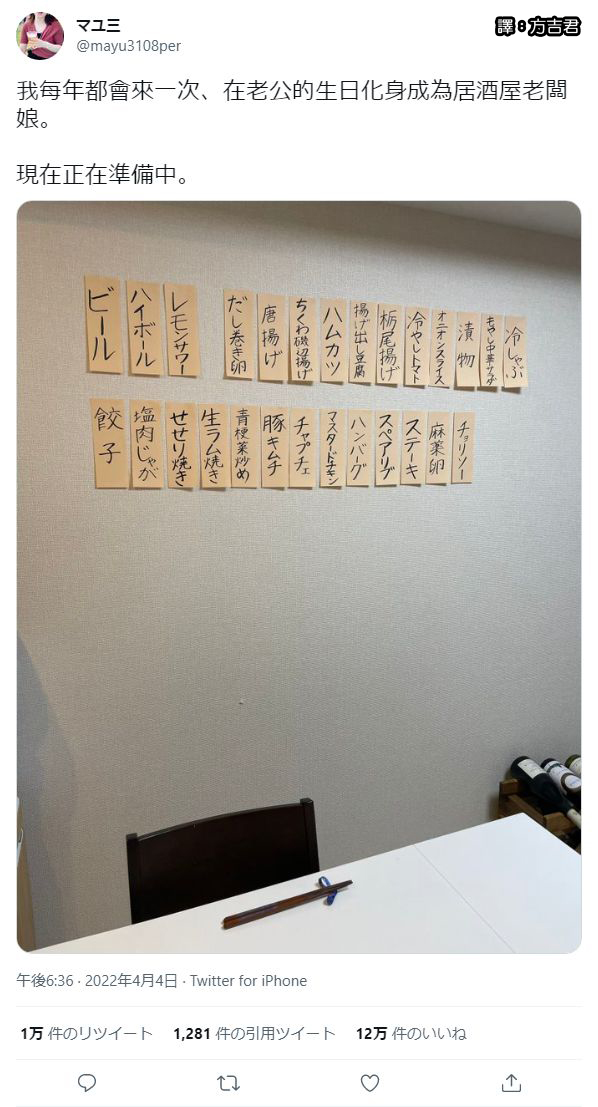 マユ三
@mayu3108per
譯:方吉君
我每年都會來一次、在老公的生日化身成為居酒屋老闆
娘。
現在正在準備中。
ビール
ハイボール
レモンサワー
だし巻き卵
唐揚げ
ちくわ磯辺揚げ
ハムカツ
揚げ出し豆腐
栃尾揚げ
冷やしトマト
オニオンスライス
漬物
もやし中華サラダ
冷しゃぶ
餃子
塩肉じゃが
せせり焼き
生ラム焼き
青梗菜炒め
豚キムチ
チャプチェ
マスタードチキン
ハンバーグ
スペアリブ
ステーキ
麻薬卵
チョリソー
午後6:36 · 2022年4月4日 · Twitter for iPhone
1万 件のリツイート 1,281 件の引用ツイート 12万 件のいいね